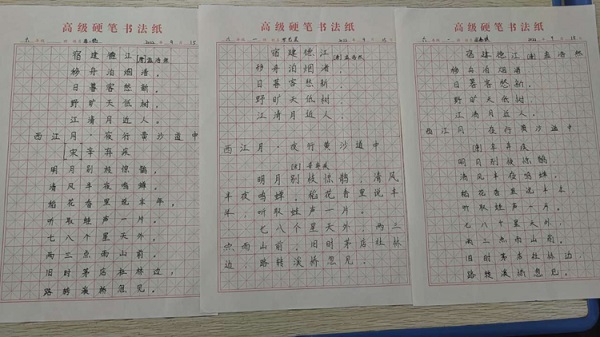 高级硬笔书法纸
宿建德江
[唐]孟浩然
移舟泊烟渚,
日暮客愁新.
野旷天低树,
江清月近人.
西江月·夜行黄沙道中
[宋]辛弃疾
明月别枝惊鹊,
清风半夜鸣蝉.
稻花香里说丰年,
听取蛙声一片.
七八个星天外,
两三点雨山前.
旧时茅店社林边,
路转溪桥忽见.
高级硬笔书法纸
宿建德江
[唐]孟浩然
移舟泊烟渚,
日暮客愁新.
野旷天低树,
江清月近人.
西江月·夜行黄沙道中
[宋]辛弃疾
明月别枝惊鹊,清风
半夜鸣蝉.稻花香里说丰
年,听取蛙声一片.
七八个星天外,两三
点雨山前.旧时茅店社林
边 路转溪桥忽见.
高级硬笔书法纸
宿建德江
[唐]孟浩然
移舟泊烟渚
日暮客愁新.
野旷天低树,
江清月近人.
西江月·夜行黄沙道中
[宋]辛弃疾
明月别枝惊鹊
清风半夜鸣蝉.
稻花香里说丰年
听取蛙声一片.
七八个星天外,
两三点雨山前.
旧时茅店社林边,
路转溪桥忽见.